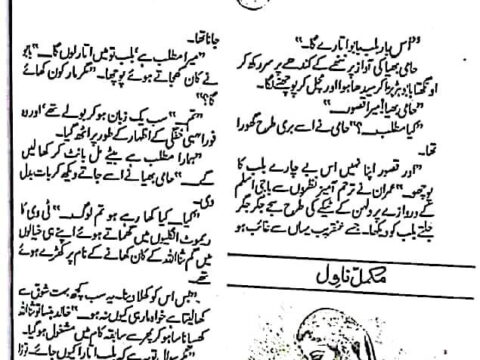 "اس بار بلب بابو اتارے گا۔"
حامی بھیا کی آواز پر ننھے کے کندھے پر سر رکھ کر
اونگھتا بابو ہڑبڑا کر سیدھا ہوا اور مچل کر پوچھنے لگا۔
"حامی بھیا! میرا قصور۔"
"کیا مطلب۔؟" حامی نے اسے بری طرح گھورا
تھا۔
"اور قصور اپنا نہیں اس بے چارے بلب کا
پوچھو۔" عمران نے ترحم آمیز نظروں سے باجی اسلم
کے دروازے پر دلہن کے ٹیکے کی طرح سجے جگر جگر
جلتے بلب کو دیکھا۔ جسے عنقریب یہاں سے غائب ہو
مکمل ناول
جانا تھا۔
"میرا مطلب ہے، بلب تو میں اتار لوں گا۔" بابو
نے کان کھجاتے ہوئے پوچھا۔ "مگر مار کون کھائے
گا؟"
"تم۔" سب یک زبان ہو کر بولے تھے اور وہ
فورا" ہی خفگی کے اظہار کے طور پر اٹھ گیا۔
"ہمارا مطلب ہے بیٹے مل بانٹ کر کھا لیں
گے۔" حامی بھیا نے اسے جاتے دیکھ کر بات بدل
دی۔
"کیا۔ کیا کھا رہے ہو تم لوگ۔" ٹی وی کا
ریموٹ انگلیوں میں گھماتے ہوئے اپنے ہی خیالوں
میں گم ثنا اللہ کے کان کھانے کے نام پر کھڑے ہوئے
تھے۔
"بس اس کو کھلا دینا۔ یہ سب کچھ بہت شوق سے
کھا لیتا ہے خواہ مار ہی کیوں نہ ہو۔" خالد ہنسا تو ثنا اللہ
کھسیانا سا ہو کر پھر سے سابقہ کام میں مشغول ہو گیا۔
سوال تو یہ ہے کہ بلب اتارا کیوں جائے، توڑا